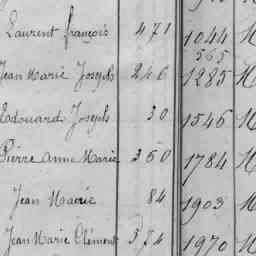 Laurent françois 471 1044
565
Jean Marie Joseph 246 1285 M
Edouard Joseph 30 1546 M
Pierre Anne Marie 350 1784 M
Jean Marie 84 1903 M
Jean Marie Clément 374 1970 M